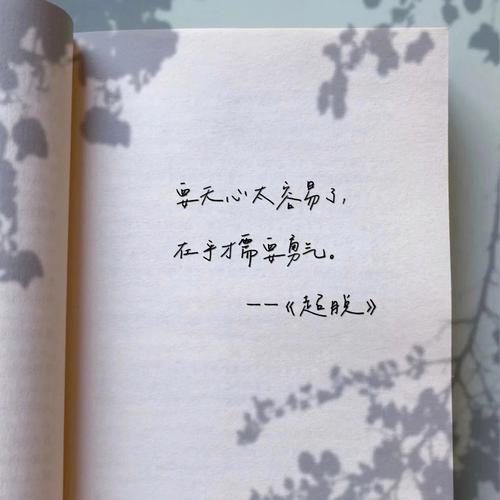 要无心太容易了，
在乎才需要勇气。
——《超脱》